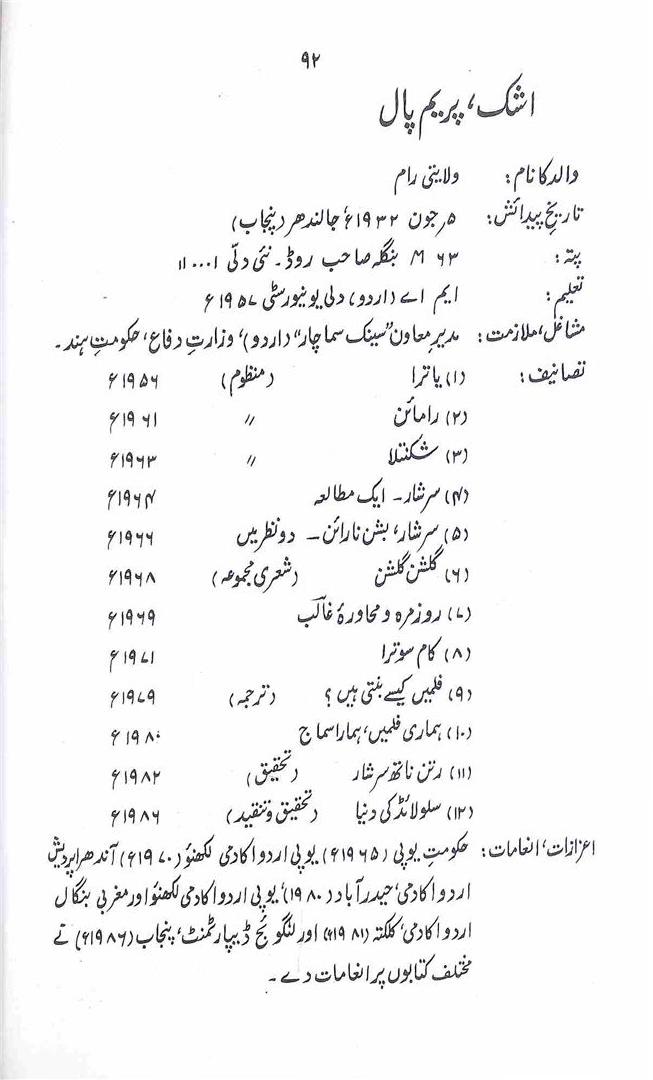 ۹۲
اشک، پریم پال
والد کا نام: ولایتی رام
تاریخ پیدائش: ۵ر جون ۱۹۳۲ء جالندھر (پنجاب)
پتہ: ۶۳ M بنگلہ صاحب روڈ۔ نئی دلّی ۱۱۰۰۰۱
تعلیم: ایم اے (اردو) دلی یونیورسٹی ۱۹۵۷ء
مشاغل، ملازمت: مدیرِ معاون "سینک سماچار" (اردو)، وزارتِ دفاع، حکومتِ ہند۔
تصانیف: (۱) یاترا (منظوم) ۱۹۵۶ء
(۲) رامائن 〃 ۱۹۶۱ء
(۳) شکنتلا 〃 ۱۹۶۳ء
(۴) سرشار۔ ایک مطالعہ ۱۹۶۴ء
(۵) سرشار، بشن نارائن۔ دو نظر میں ۱۹۶۶ء
(۶) گلشن گلشن (شعری مجموعہ) ۱۹۶۸ء
(۷) روزمرہ و محاورۂ غالب ۱۹۶۹ء
(۸) کام سوترا ۱۹۷۱ء
(۹) فلمیں کیسے بنتی ہیں؟ (ترجمہ) ۱۹۷۹ء
(۱۰) ہماری فلمیں، ہمارا سماج ۱۹۸۰ء
(۱۱) رتن ناتھ سرشار (تحقیق) ۱۹۸۲ء
(۱۲) سلولائڈ کی دنیا (تحقیق و تنقید) ۱۹۸۶ء
اعزازات، انعامات: حکومتِ یوپی (۱۹۶۵ء) یوپی اردو اکادمی لکھنؤ (۱۹۷۰ء) آندھرا پردیش
اردو اکادمی، حیدرآباد (۱۹۸۰)، یوپی اردو اکادمی لکھنؤ اور مغربی بنگال
اردو اکادمی، کلکتہ (۱۹۸۱ء) اور لنگویج ڈیپارٹمنٹ، پنجاب (۱۹۸۶ء) نے
مختلف کتابوں پر انعامات دے۔